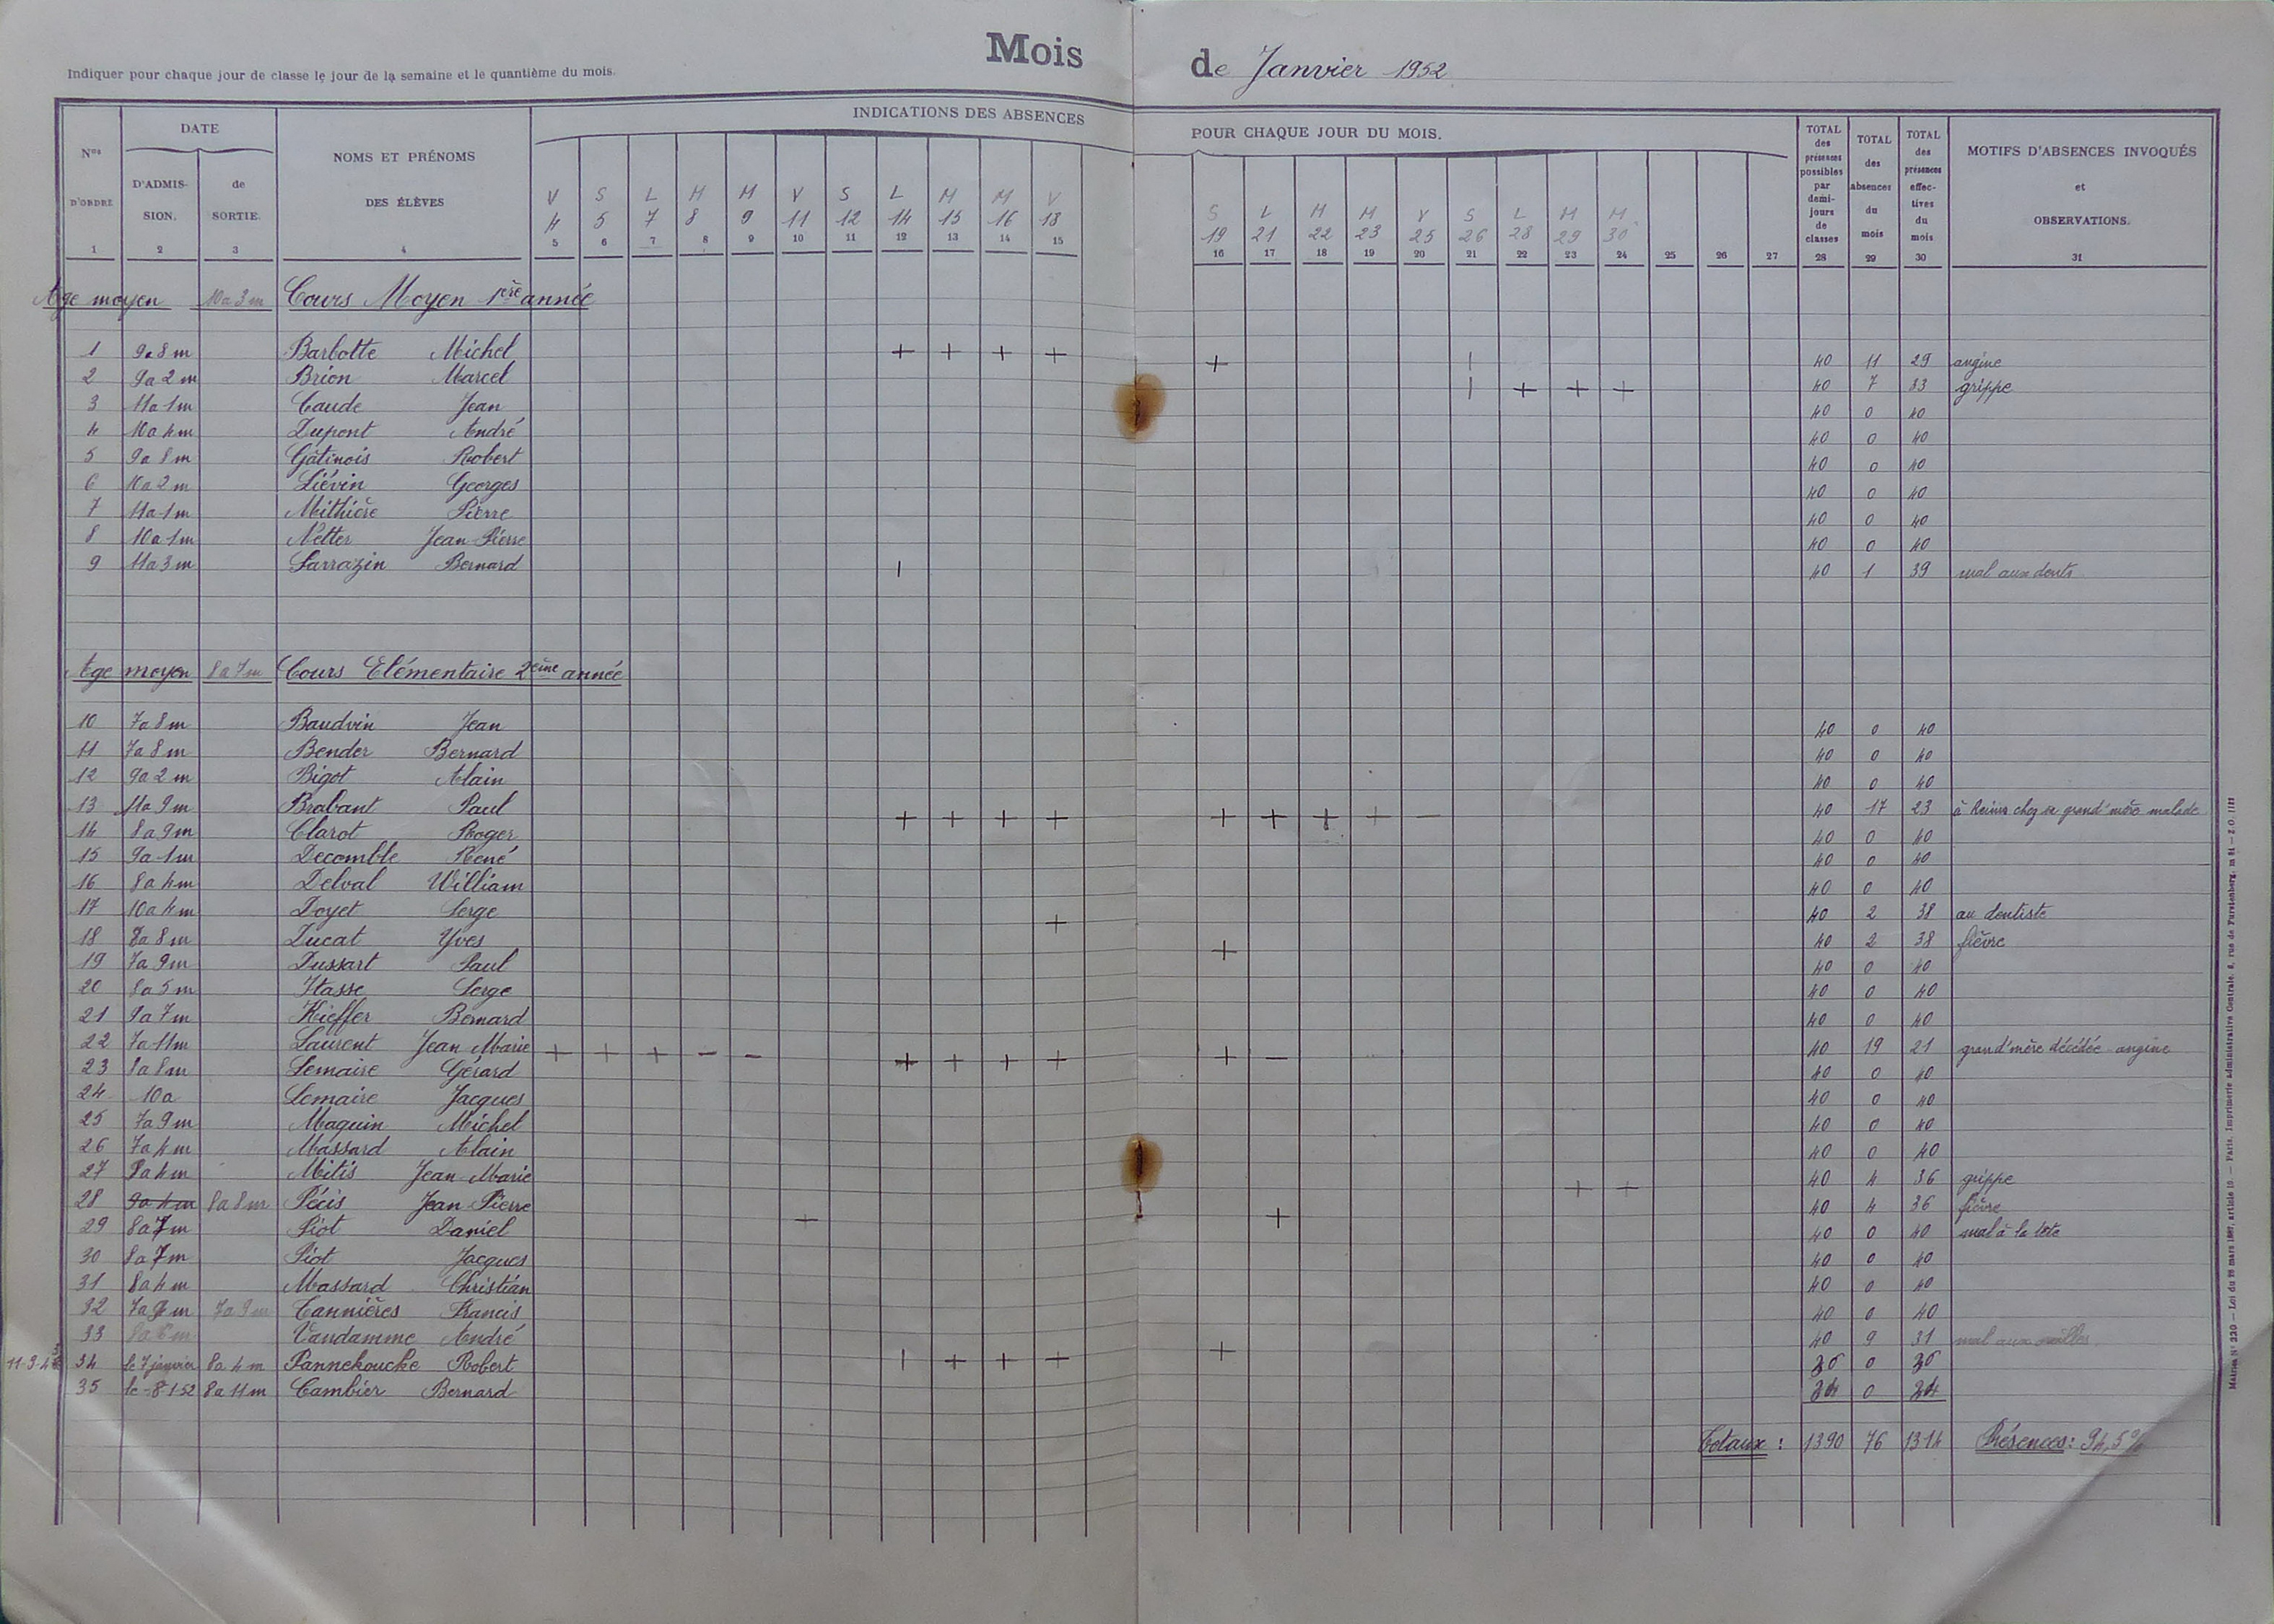 Mois de Janvier 1952
Indiquer pour chaque jour de classe le jour de la semaine et le quantième du mois.
INDICATIONS DES ABSENCES POUR CHAQUE JOUR DU MOIS.
Nos D'ORDRE 1
DATE
D'ADMISSION. 2
de SORTIE. 3
NOMS ET PRÉNOMS DES ÉLÈVES 4
V S L M M V S L M M V S L M M V S L M M
4 5 7 8 9 11 12 14 15 16 18 19 21 22 23 25 26 28 29 30
5 6 7 8 9 10 11 12 13 14 15 16 17 18 19 20 21 22 23 24 25 26 27
TOTAL des présences possibles par demi-jours de classes 28
TOTAL des absences du mois 29
TOTAL des présences effectives du mois 30
MOTIFS D'ABSENCES INVOQUÉS et OBSERVATIONS. 31
Age moyen 10a 3m Cours Moyen 1ère année
1 9a 8m Barbotte Michel + + + + + | 40 11 29 angine
2 9a 2m Brion Marcel | + + + 40 7 33 grippe
3 11a 1m Caude Jean 40 0 40
4 10a 4m Dupont André 40 0 40
5 9a 8m Gâtinois Robert 40 0 40
6 10a 2m Liévin Georges 40 0 40
7 11a 1m Mithière Pierre 40 0 40
8 10a 1m Netter Jean-Pierre 40 0 40
9 11a 3m Sarrazin Bernard | 40 1 39 mal aux dents
Age moyen 8a 7m Cours Elémentaire 2ème année
10 7a 8m Baudvin Jean 40 0 40
11 7a 8m Bender Bernard 40 0 40
12 9a 2m Bigot Alain 40 0 40
13 11a 9m Brabant Paul + + + + + + + + - 40 17 23 à Reims chez sa grand'mère malade
14 8a 9m Clarot Roger 40 0 40
15 9a 1m Decomble René 40 0 40
16 8a 4m Delval William 40 0 40
17 10a 4m Doyet Serge + 40 2 38 au dentiste
18 8a 8m Ducat Yves + 40 2 38 fièvre
19 7a 9m Dussart Paul 40 0 40
20 8a 5m Itasse Serge 40 0 40
21 9a 7m Kieffer Bernard 40 0 40
22 7a 11m Laurent Jean Marie + + + - - + + + + + - 40 19 21 grand'mère décédée - angine
23 8a 8m Lemaire Gérard 40 0 40
24 10a Lemaire Jacques 40 0 40
25 7a 9m Maquin Michel 40 0 40
26 7a 4m Massard Alain 40 0 40
27 8a 4m Mitis Jean Marie + + 40 4 36 grippe
28 9a 4m 8a 8m Pécis Jean Pierre + + 40 4 36 fièvre
29 8a 7m Piot Daniel 40 0 40 mal à la tête
30 8a 7m Piot Jacques 40 0 40
31 8a 4m Massard Christián 40 0 40
32 7a 9m 7a 9m Tannières Francis 40 0 40
33 8a 6m Vandamme André | + + + + 40 9 31 mal aux
34 le 7 janvier 8a 4m Pannekoucke Robert 36 0 36
35 le 8-1-52 8a 11m Cambier Bernard 34 0 34
Totaux : 1390 76 1314 Présences : 94,5%
Modèle N° 220 — Loi du 28 mars 1882, article 10 — Paris, Imprimerie administrative Centrale, 8, rue de Furstenberg.